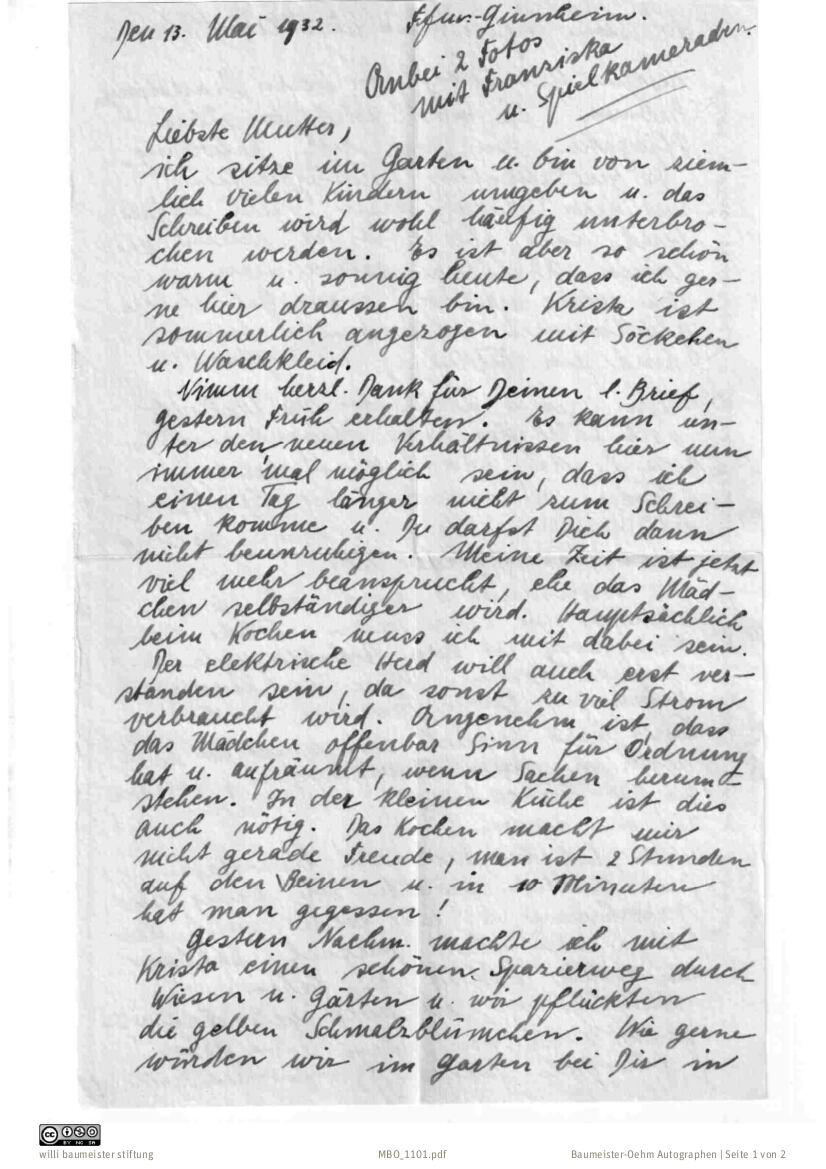 Den 13. Mai 1932.
Ffm.-Ginnheim.
Anbei 2 Fotos
mit Franziska
u. Spielkameraden.
Liebste Mutter,
ich sitze im Garten u. bin von ziem-
lich vielen Kindern umgeben u. das
Schreiben wird wohl häufig unterbro-
chen werden. Es ist aber so schön
warm u. sonnig heute, dass ich ger-
ne hier draussen bin. Krista ist
sommerlich angezogen mit Söckchen
u. Waschkleid.
Nimm herzl. Dank für Deinen l. Brief,
gestern Früh erhalten. Es kann un-
ter den neuen Verhältnissen hier nun
immer 'mal möglich sein, dass ich
einen Tag länger nicht zum Schrei-
ben komme u. Du darfst Dich dann
nicht beunruhigen. Meine Zeit ist jetzt
viel mehr beansprucht, ehe das Mäd-
chen selbständiger wird. Hauptsächlich
beim Kochen muss ich mit dabei sein.
Der elektrische Herd will auch erst ver-
standen sein, da sonst zu viel Strom
verbraucht wird. Angenehm ist, dass
das Mädchen offenbar Sinn für Ordnung
hat u. aufräumt, wenn Sachen herum-
stehen. In der kleinen Küche ist dies
auch nötig. Das Kochen macht mir
nicht gerade Freude, man ist 2 Stunden
auf den Beinen u. in 10 Minuten
hat man gegessen!
Gestern Nachm. machte ich mit
Krista einen schönen Spazierweg durch
Wiesen u. Gärten u. wir pflückten
die gelben Schmalzblümchen. Wie gerne
würden wir im Garten bei Dir in
CC BY NC SA
willi baumeister stiftung
MBO_1101.pdf
Baumeister-Oehm Autographen | Seite 1 von 2